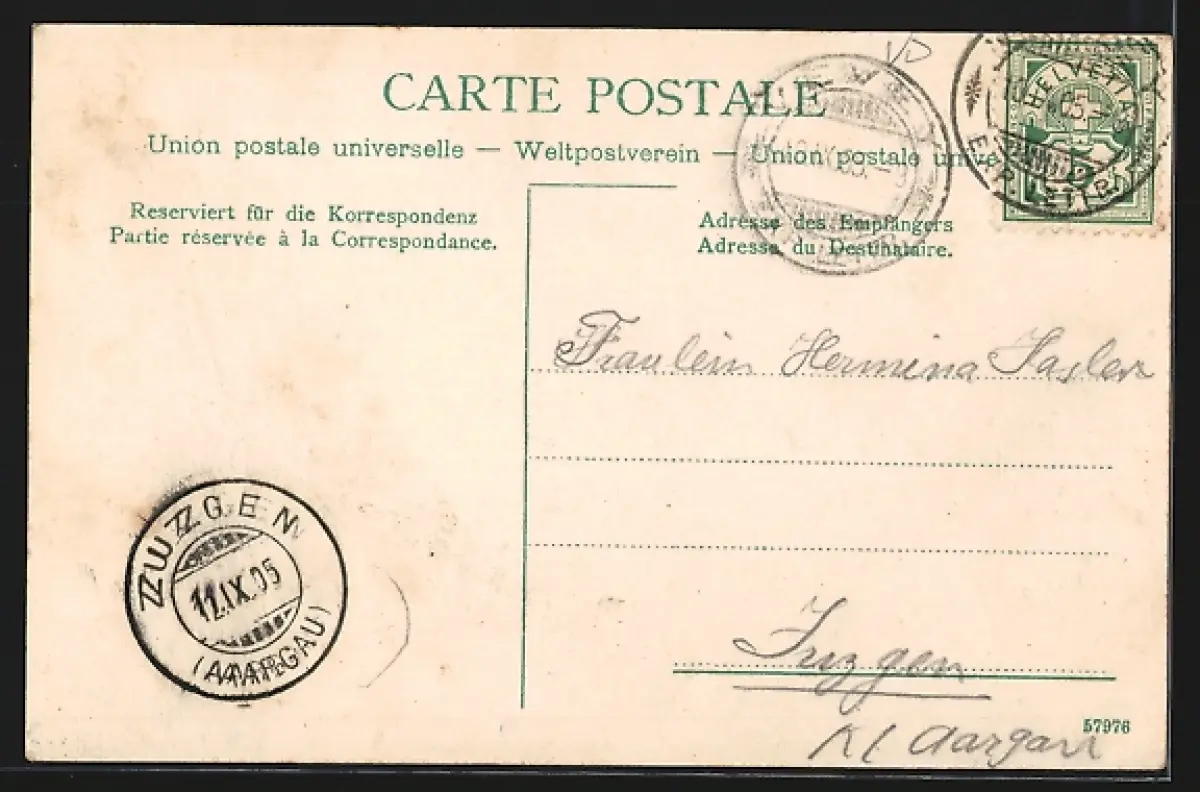 VD
CARTE POSTALE
Union postale universelle — Weltpostverein — Union postale unive
HELVETIA
Reserviert für die Korrespondenz
Partie réservée à la Correspondance.
Adresse des Empfängers
Adresse du Destinataire.
Fraulein Hermina
ZUZGEN
11.IX.05
(AARGAU)
Zuzgen
57976
Kt Aargau